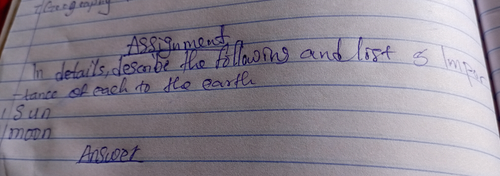 Geography
Assignment
In details, describe the following and list 5 Impor
tance of each to the earth
Sun
moon
Answer